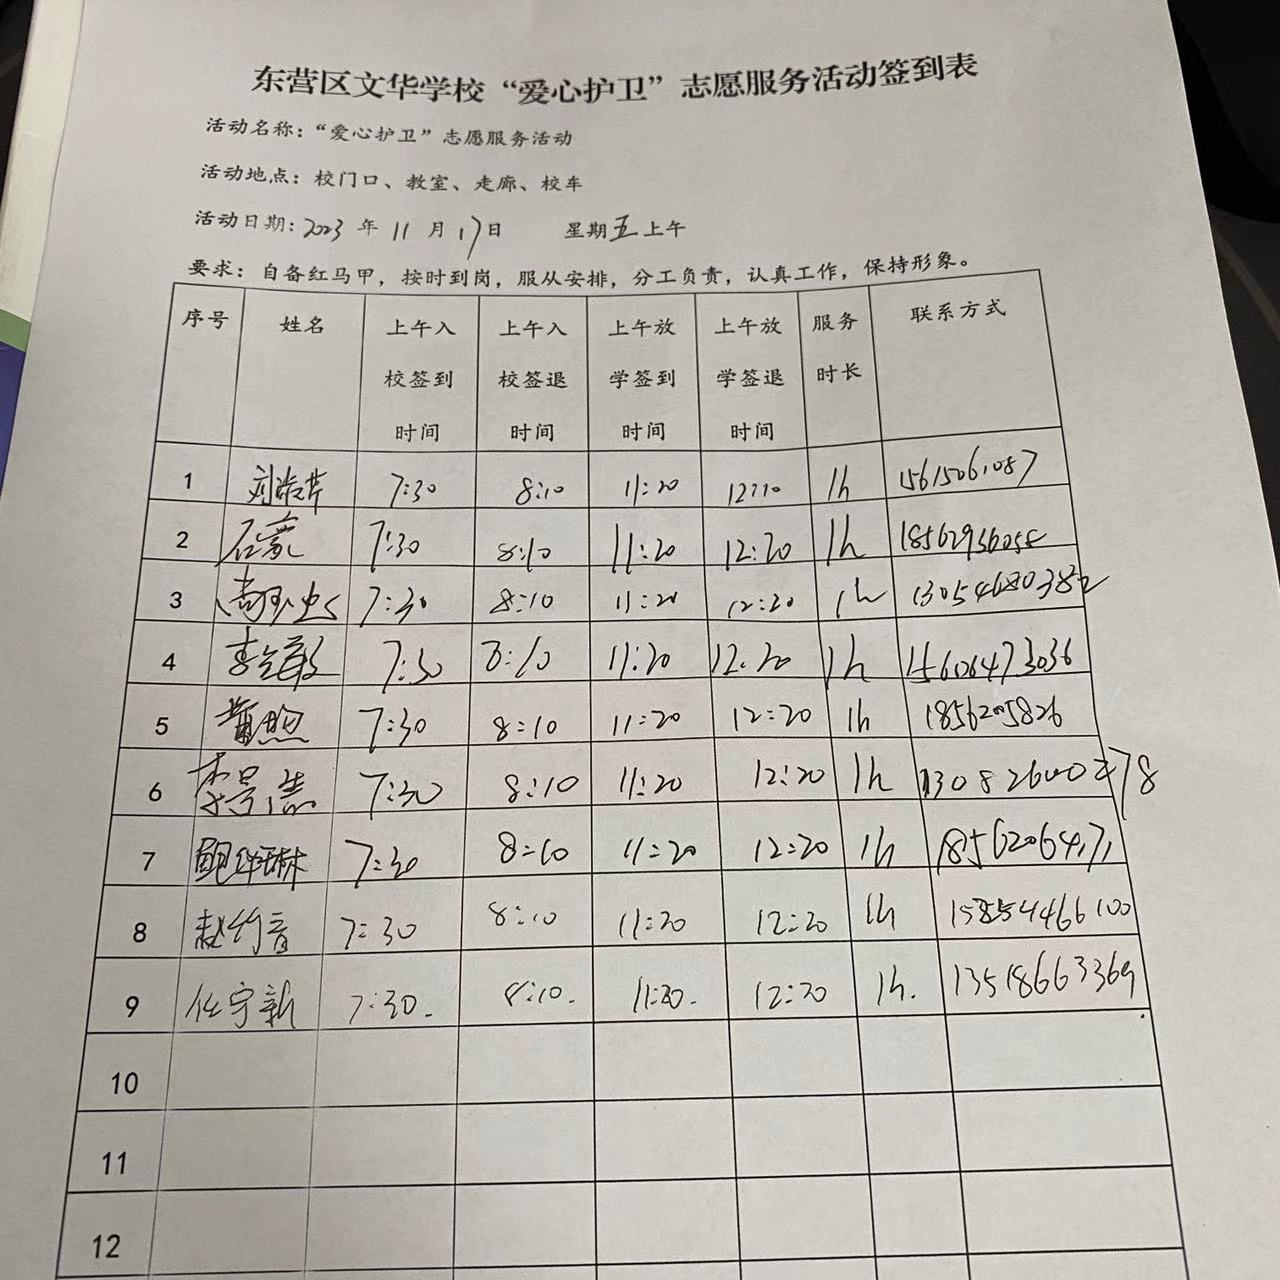 东营区文华学校“爱心护卫”志愿服务活动签到表
活动名称：“爱心护卫”志愿服务活动
活动地点：校门口、教室、走廊、校车
活动日期：2023 年 11 月 17日 星期五上午
要求：自备红马甲，按时到岗，服从安排，分工负责，认真工作，保持形象。
序号 姓名 上午入校签到时间 上午入校签退时间 上午放学签到时间 上午放学签退时间 服务时长 联系方式
1 7:30 8:10 11:20 12:10 1h 15615061087
2 7:30 8:10 11:20 12:20 1h 18562936058
3 7:30 8:10 11:20 12:20 1h 13054680382
4 7:30 8:10 11:20 12:20 1h 15606473036
5 7:30 8:10 11:20 12:20 1h
6 7:30 8:10 11:20 12:20 1h
7 7:30 8:10 11:20 12:20 1h
8 赵约音 7:30 8:10 11:20 12:20 1h 15854466100
9 任宇新 7:30. 8:10. 11:20. 12:20 1h. 13518663369
10
11
12